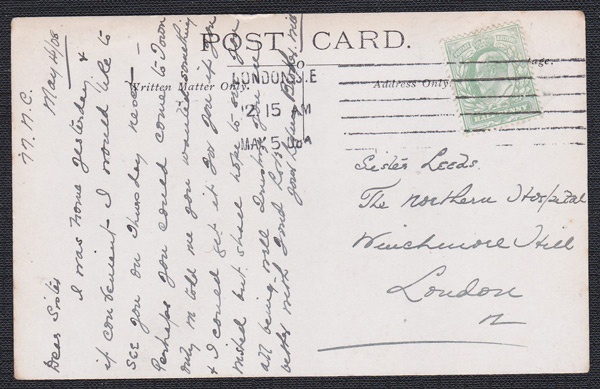 POST CARD.
Written Matter Only.
Address Only
LONDON S.E
12.15 PM
MAY 5 08
HALFPENNY
N. N. C.
May 4/08
Dear Sister
I was home yesterday &
if convenient I would like to
see you on Thursday next –
Perhaps you could come to Town
only M told me you wanted something
& I could get it for you if you
wished but shall hope to see you
all being well Trusting you are
better with good
Sister Leeds.
The Northern Hospital
Winchmore Hill
London
N